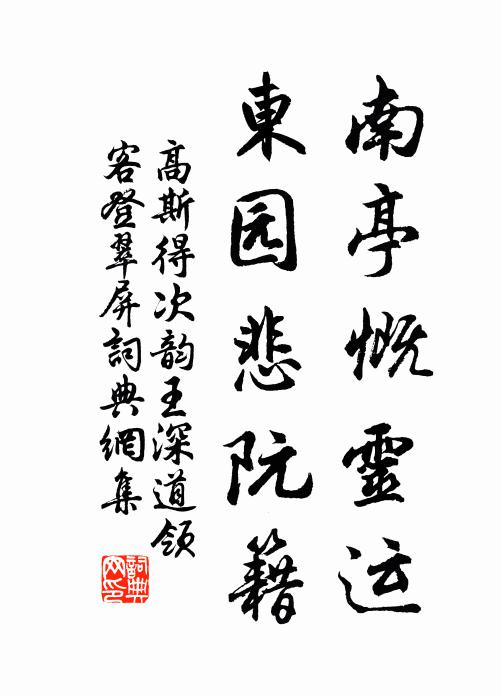 南亭慨靈运
東园悲阮籍
高斯得次韵王深道领
客登翠屏詞典網集
詞典网印